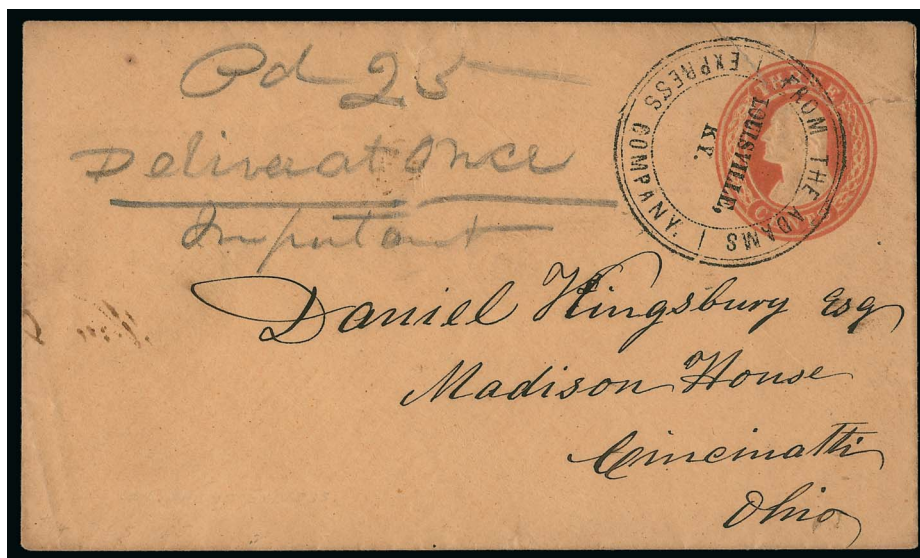 Pd 25
Deliver at Once
Important
FROM THE ADAMS
EXPRESS COMPANY.
LOUISVILLE,
KY.
THREE
Daniel Kingsbury Esq
Madison House
Cincinatti
Ohio